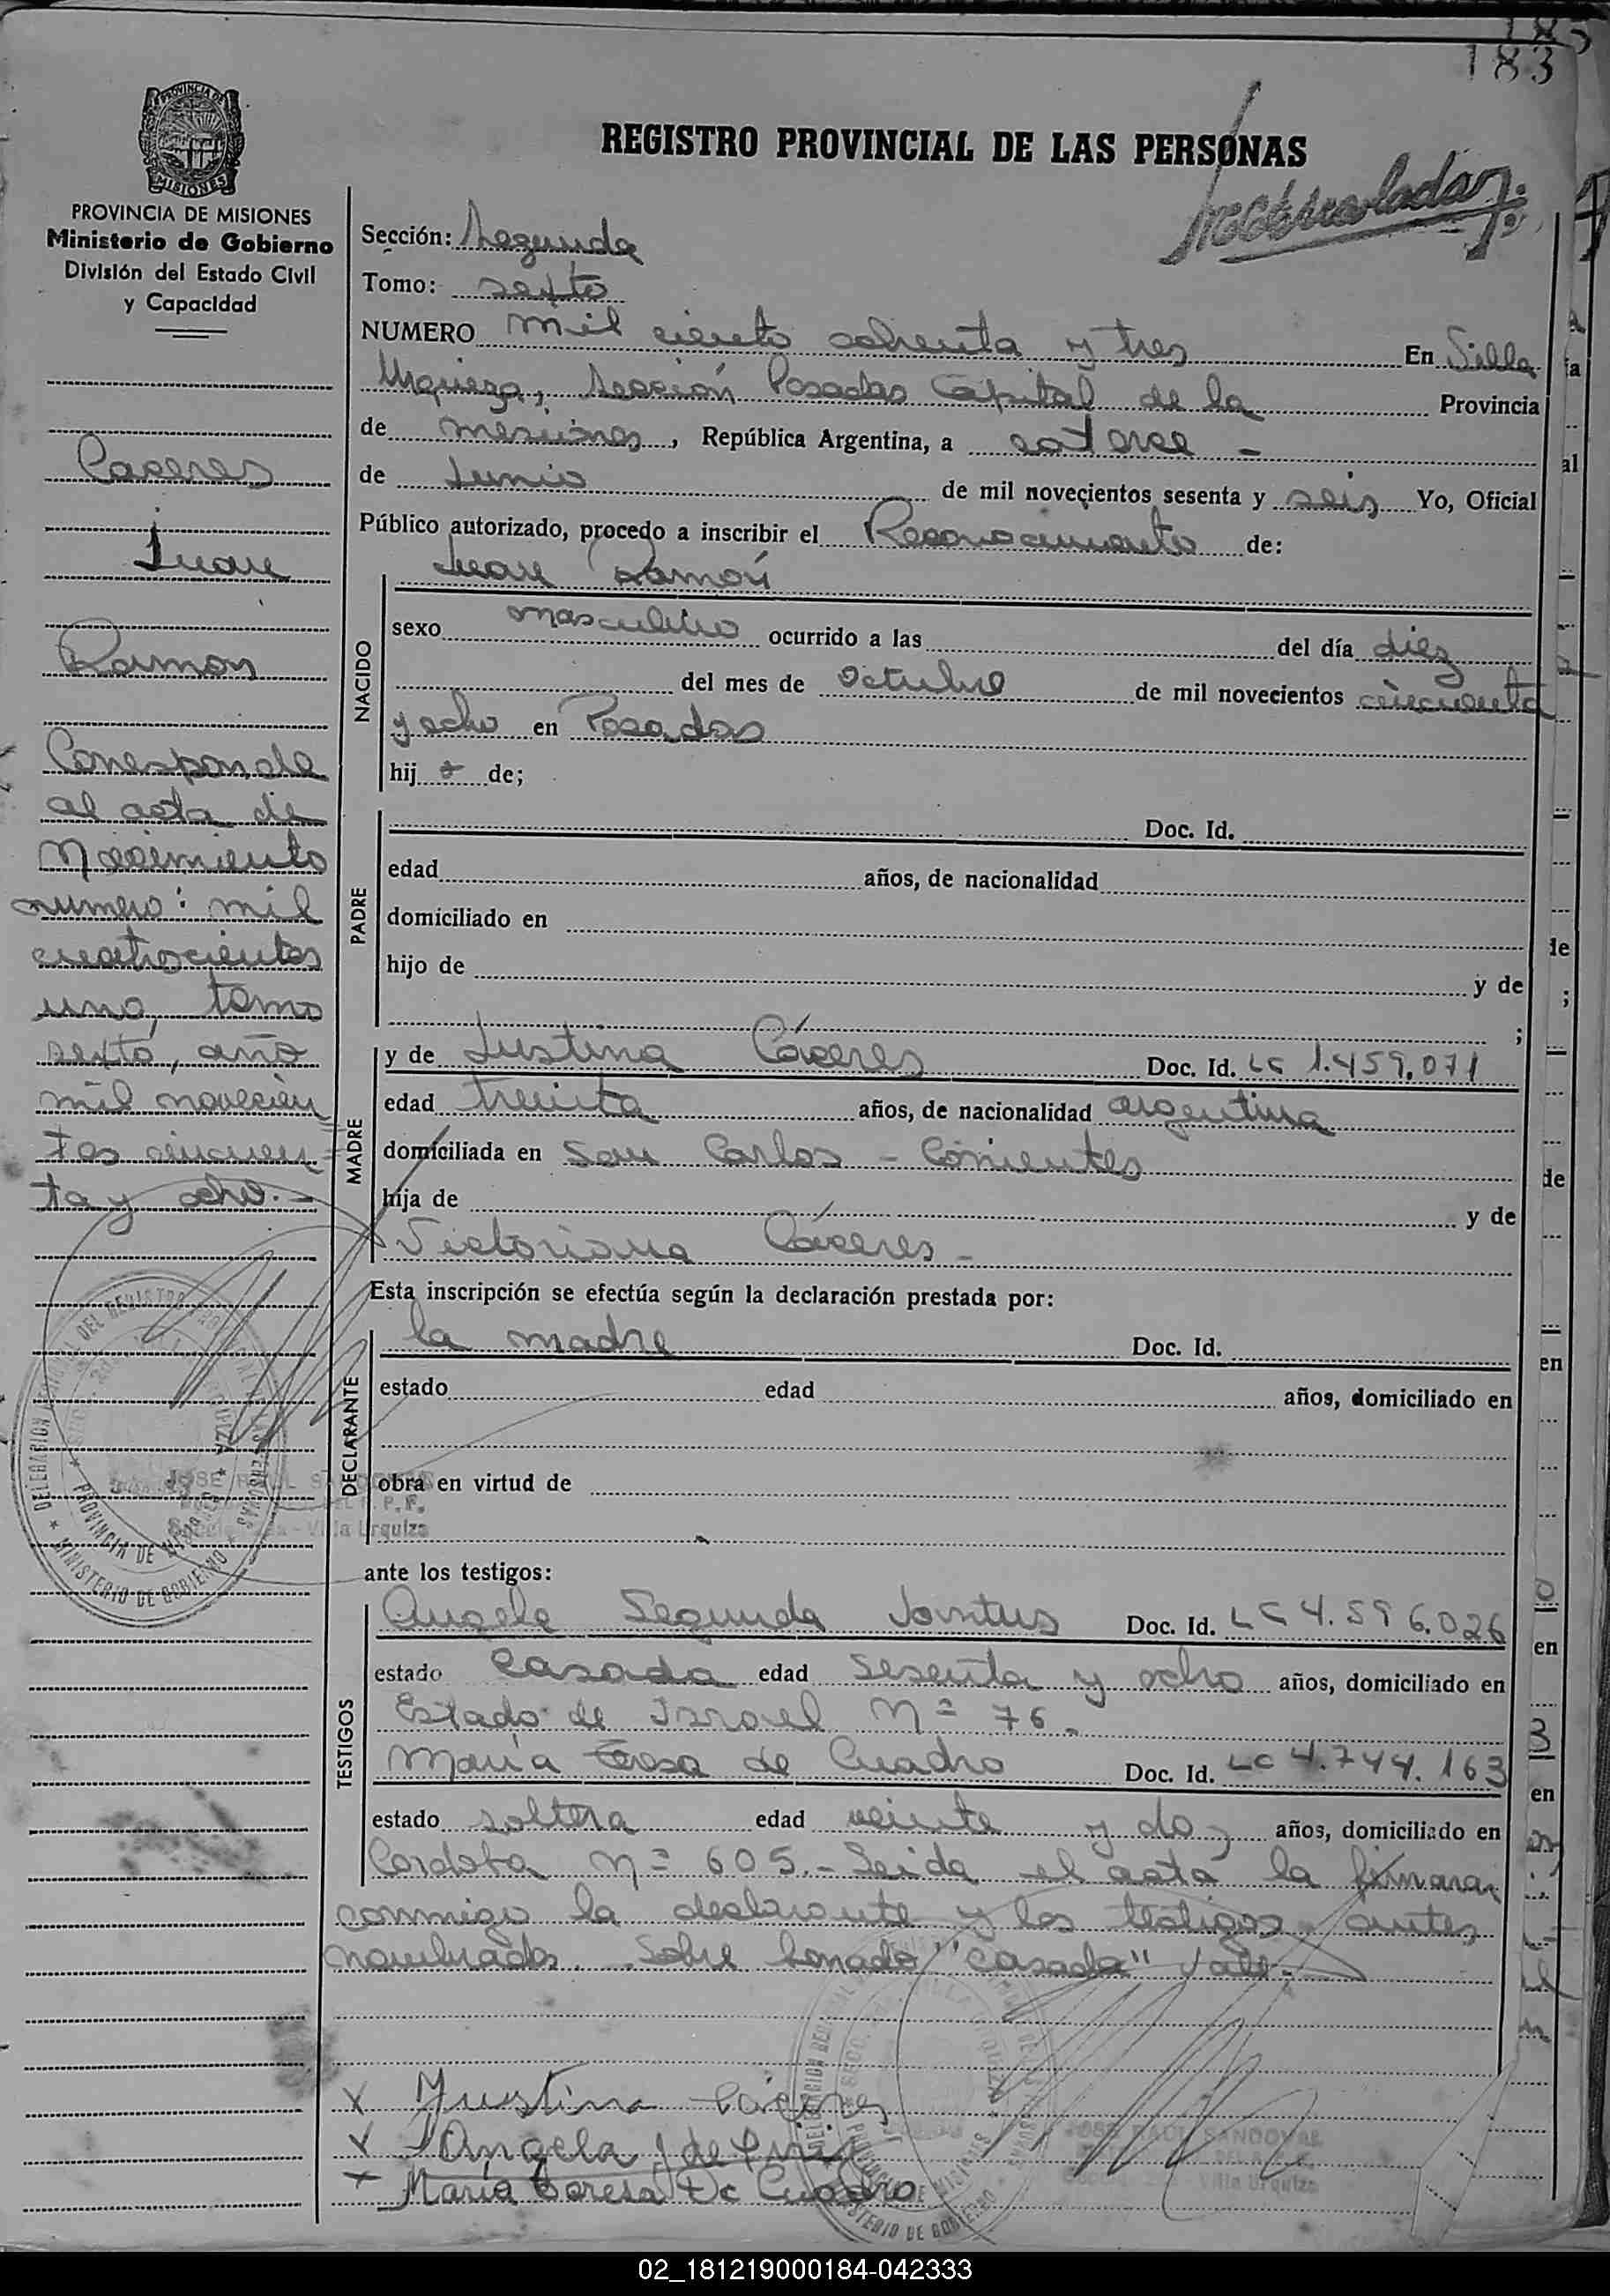 185
183
REGISTRO PROVINCIAL DE LAS PERSONAS
PROVINCIA DE MISIONES
Ministerio de Gobierno
División del Estado Civil
y Capacidad
Caceres
Juan
Ramon
Corresponde
al acta de
Nacimiento
numero: mil
cuatrocientos
uno, tomo
sexto, año
mil novecien
tos cincuen
ta y ocho.-
Sección: Segunda
Tomo: sexto
NUMERO mil ciento ochenta y tres En Villa
Urquiza, Sección Posadas Capital de la Provincia
de misiones, República Argentina, a catorce -
de Junio de mil novecientos sesenta y seis Yo, Oficial
Público autorizado, procedo a inscribir el Reconocimiento de:
NACIDO
Juan Ramón
sexo masculino ocurrido a las del día diez
del mes de Octubre de mil novecientos cincuenta
y ocho en Posadas
hij o de;
PADRE
Doc. Id.
edad años, de nacionalidad
domiciliado en
hijo de y de
;
MADRE
y de Justina Cáceres Doc. Id. LC 1.459.071
edad treinta años, de nacionalidad argentina
domiciliada en San Carlos - Corrientes
hija de y de
Victoriana Cáceres -
Esta inscripción se efectúa según la declaración prestada por:
DECLARANTE
la madre Doc. Id.
estado edad años, domiciliado en
obra en virtud de
ante los testigos:
TESTIGOS
Angela Segunda Doc. Id. LC 4.596.026
estado casada edad sesenta y ocho años, domiciliado en
Estado de Israel Nº 76.
María Teresa de Cuadro Doc. Id. LC 4.744.163
estado soltera edad veinte y dos años, domiciliado en
Cordoba Nº 605.- Leida el acta la firmaran
conmigo la declarante y los testigos antes
nombrados. Sobre borrado "casada" Vale.-
x Justina Cáceres
x Angela J de
x María Teresa De Cuadro
JOSE RAUL SANDOVAL
Villa Urquiza
02_181219000184-042333